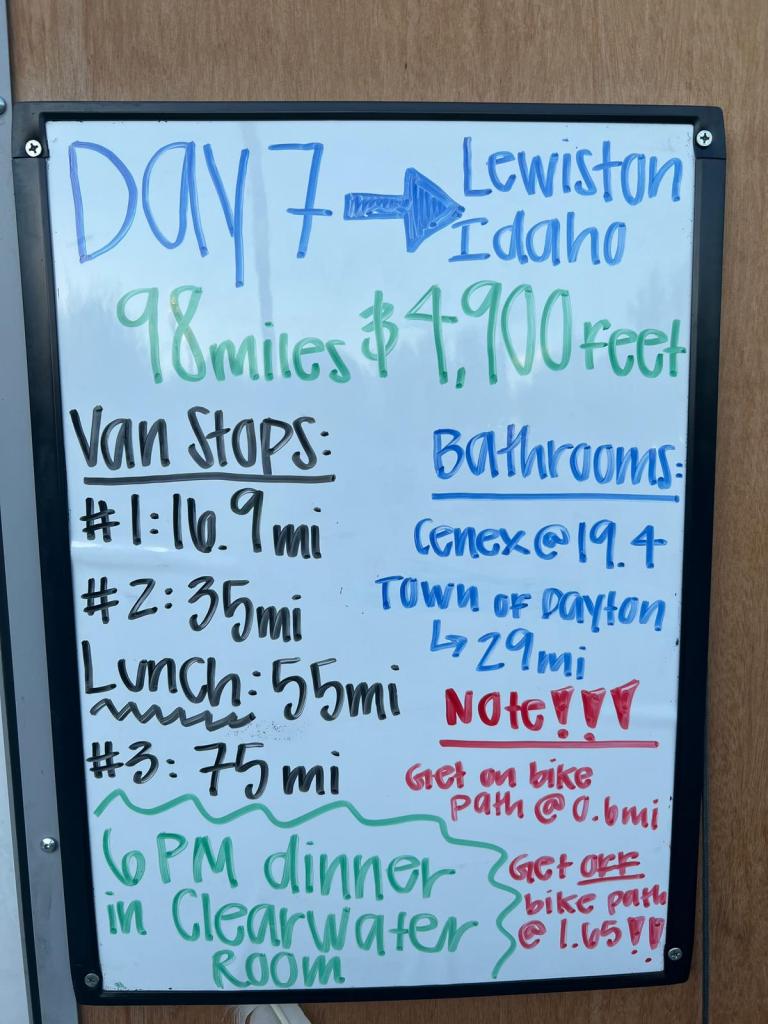 DAY 7 → Lewiston
Idaho
98 miles & 4,900 feet
Van Stops:
#1: 16.9 mi
#2: 35mi
Lunch: 55mi
#3: 75 mi
Bathrooms:
Cenex @ 19.4
Town of Dayton
↳ 29mi
Note!!!
Get on bike
path @ 0.6mi
Get off
bike path
@ 1.65!!
6 PM dinner
in Clearwater
Room